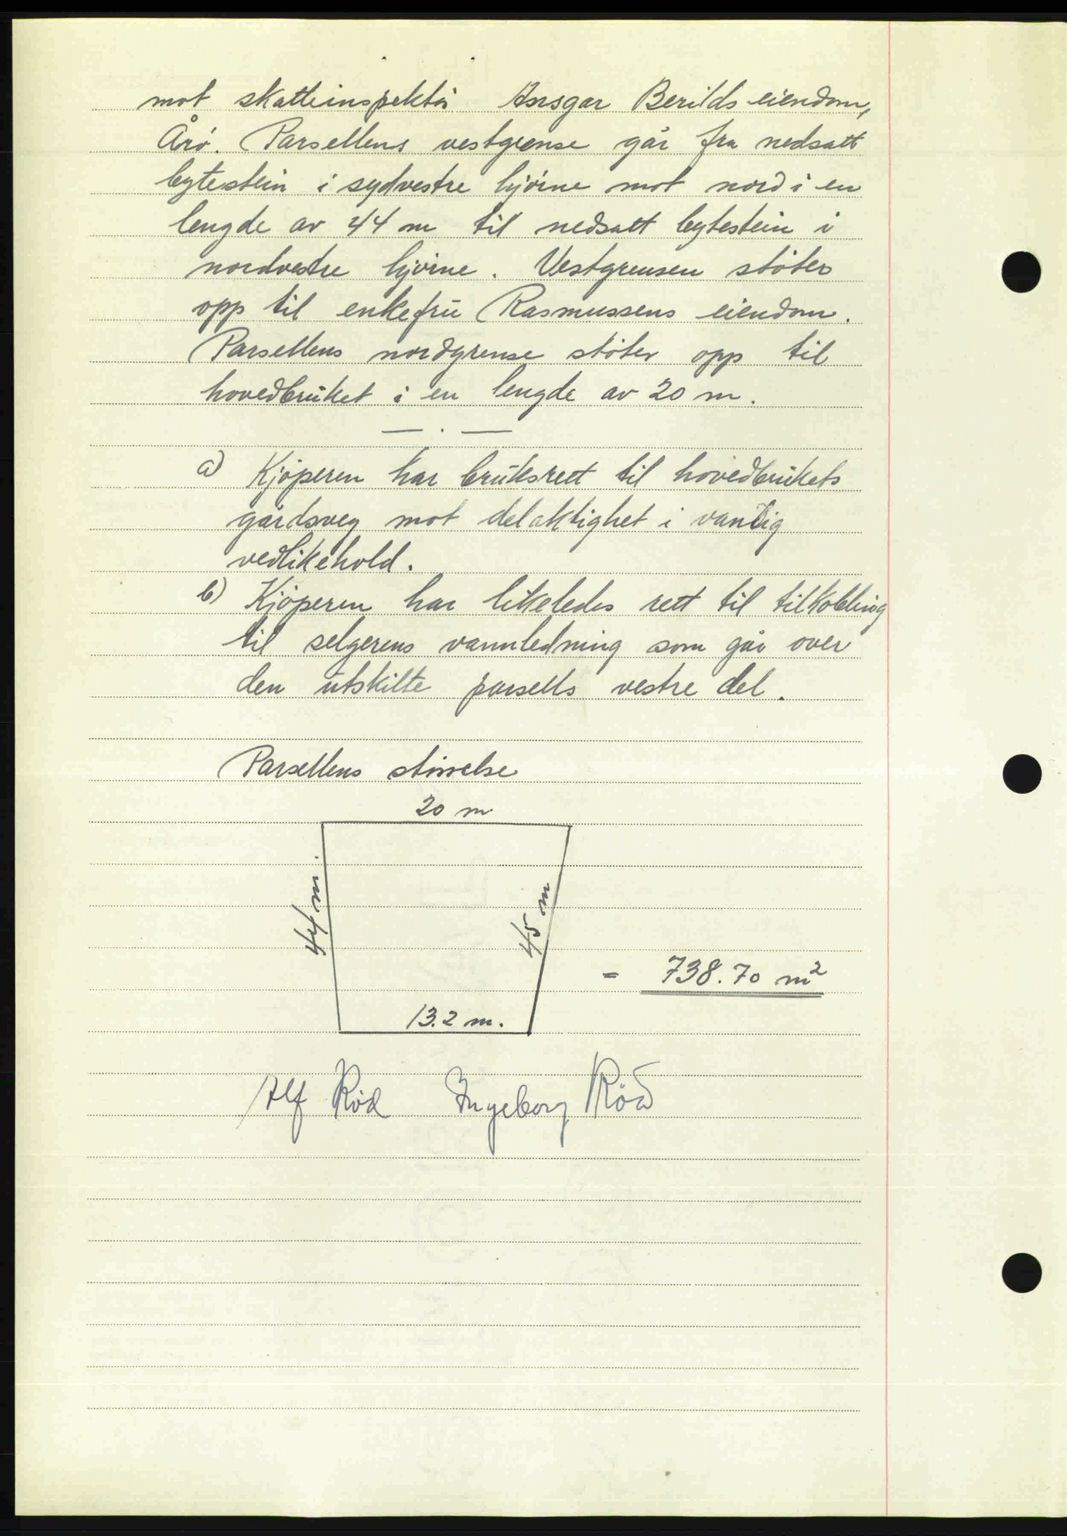 mot skatteinspektør Ansgar Berilds eiendom,
Årö. Parsellens vestgrense går fra nedsatt
bytestein i sydvestre hjörne mot nord i en
lengde av 44 m til nedsatt bytestein i
nordvestre hjörne. Vestgrensen stöter
opp til enkefru Rasmussens eiendom.
Parsellens nordgrense stöter opp til
hovedbruket i en lengde av 20 m.
— . —
a) Kjöperen har bruksrett til hovedbrukets
gårdsveg mot delaktighet i vanlig
vedlikehold.
b) Kjöperen har likeledes rett til tilkobling
til selgerens vannledning som går over
den utskilte parsells vestre del.
Parsellens störrelse
20 m
44 m.
45 m
= 738.70 m²
13.2 m.
Alf Röd Ingeborg Röd